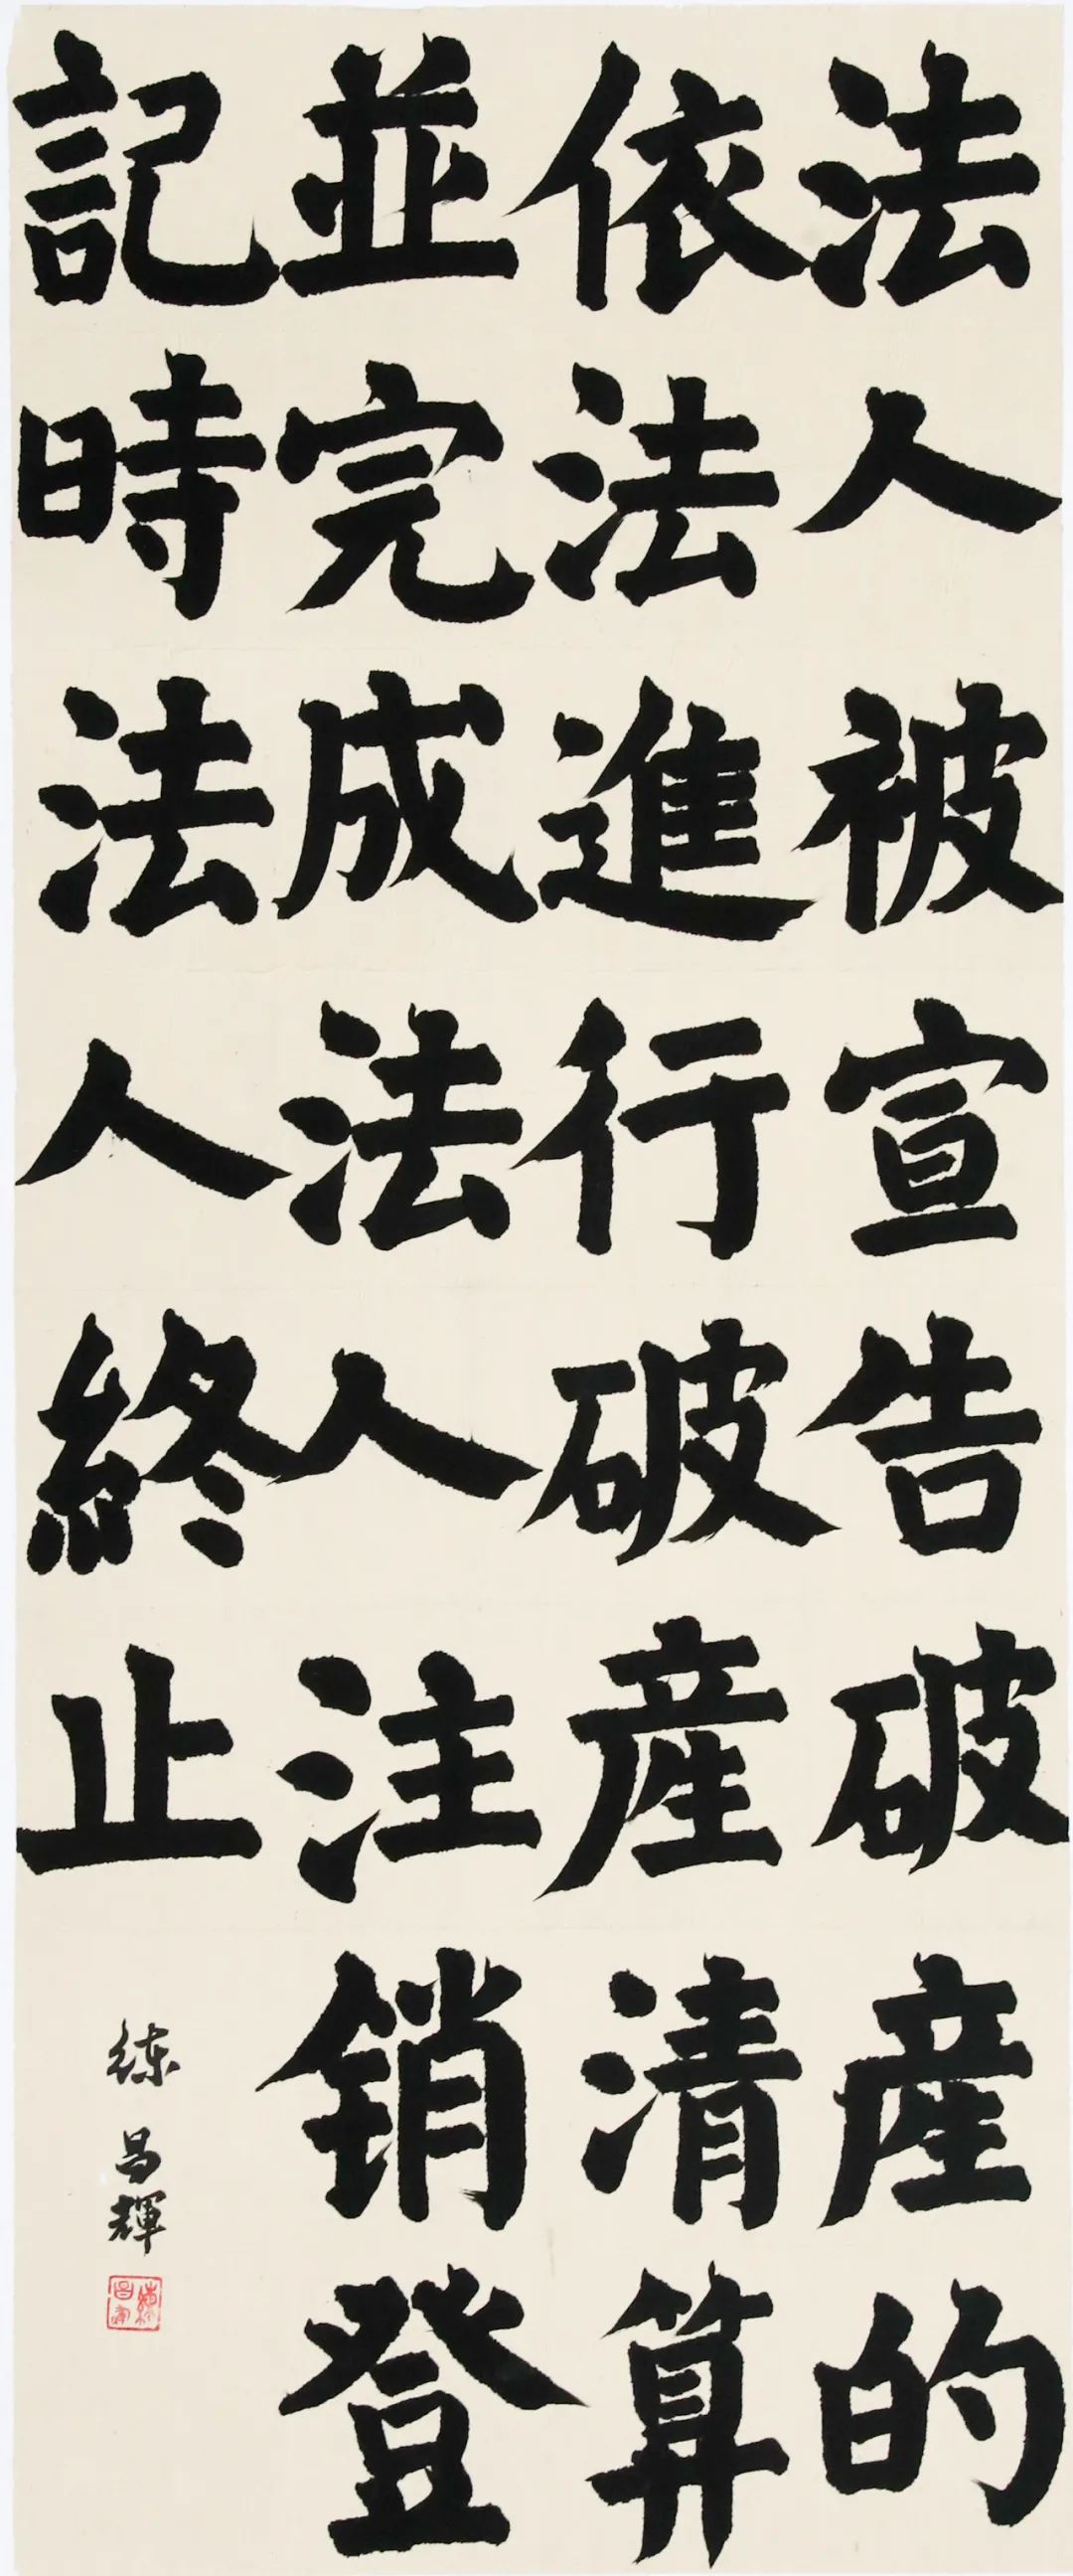 法人被宣告破産的
依法進行破産清算
並完成法人注销登
記時法人終止
练昌輝